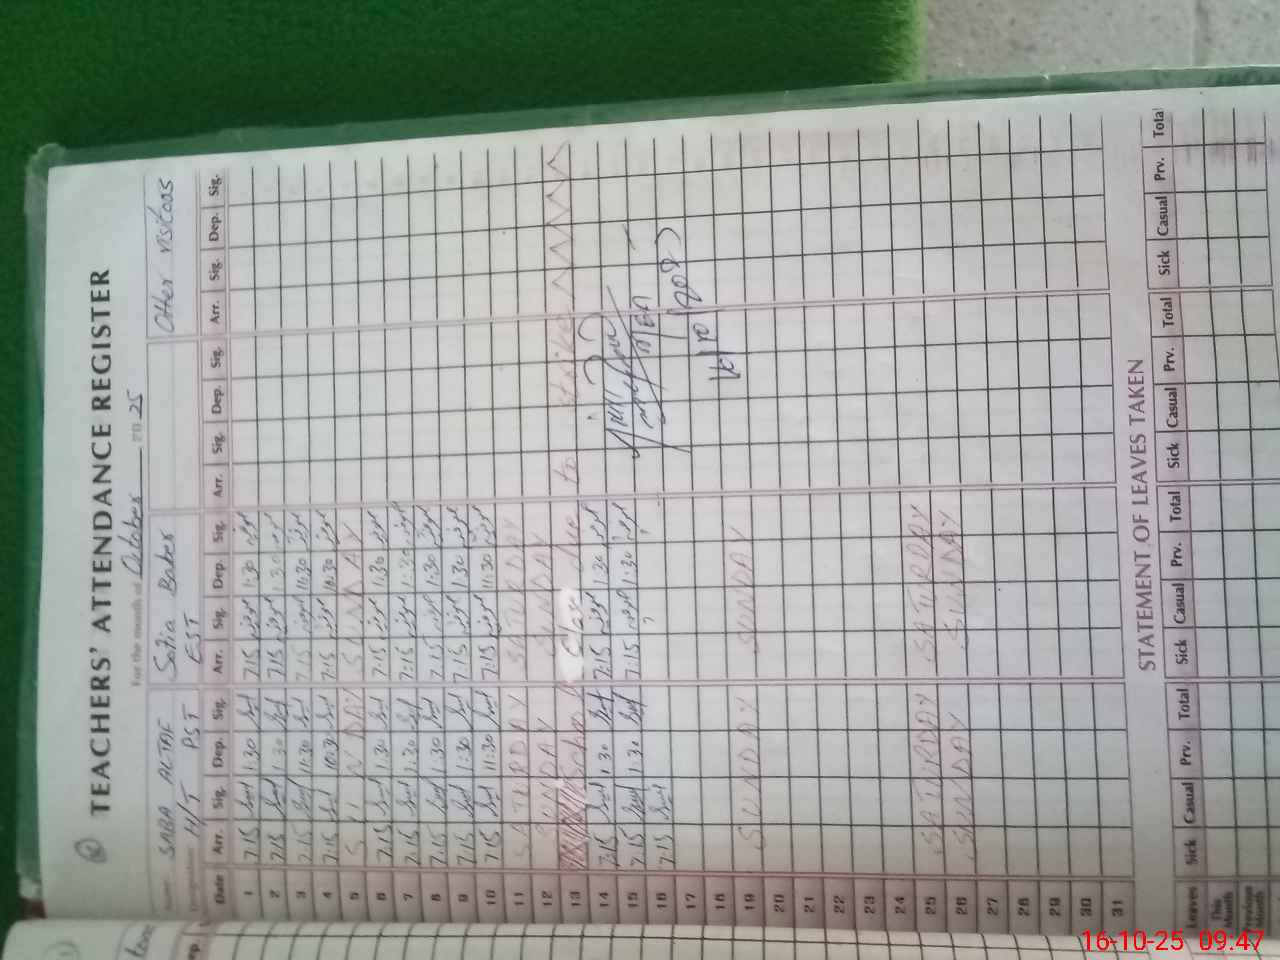 TEACHERS' ATTENDANCE REGISTER
For the month of October 2025
SABA ALTAF Sofia Baber Other visitors
H/T PST EST
Date Arr. Sig. Dep. Sig. Arr. Sig. Dep. Sig. Arr. Sig. Dep. Sig. Arr. Sig. Dep. Sig.
1 7:15 1:30 7:15 1:30
2 7:15 1:30 7:15 1:30
3 7:15 11:30 7:15 11:30
4 7:15 10:30 7:15 10:30
5 SUNDAY SUNDAY
6 7:15 1:30 7:15 1:30
7 7:15 1:30 7:15 1:30
8 7:15 1:30 7:15 1:30
9 7:15 1:30 7:15 1:30
10 7:15 11:30 7:15 11:30
11 SATURDAY SATURDAY
12 SUNDAY SUNDAY
13 School close due to strike
14 7:15 1:30 7:15 1:30
15 7:15 1:30 7:15 1:30
16 7:15
17
18
19 SUNDAY SUNDAY
20
21
22
23
24
25 SATURDAY SATURDAY
26 SUNDAY SUNDAY
27
28
29
30
31
STATEMENT OF LEAVES TAKEN
Leaves Sick Casual Prv. Total Sick Casual Prv. Total Sick Casual Prv. Total Sick Casual Prv. Total
This Month
Previous Month
16-10-25 09:47